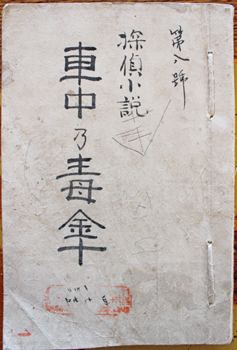 第八號
探偵小説
車中乃毒傘